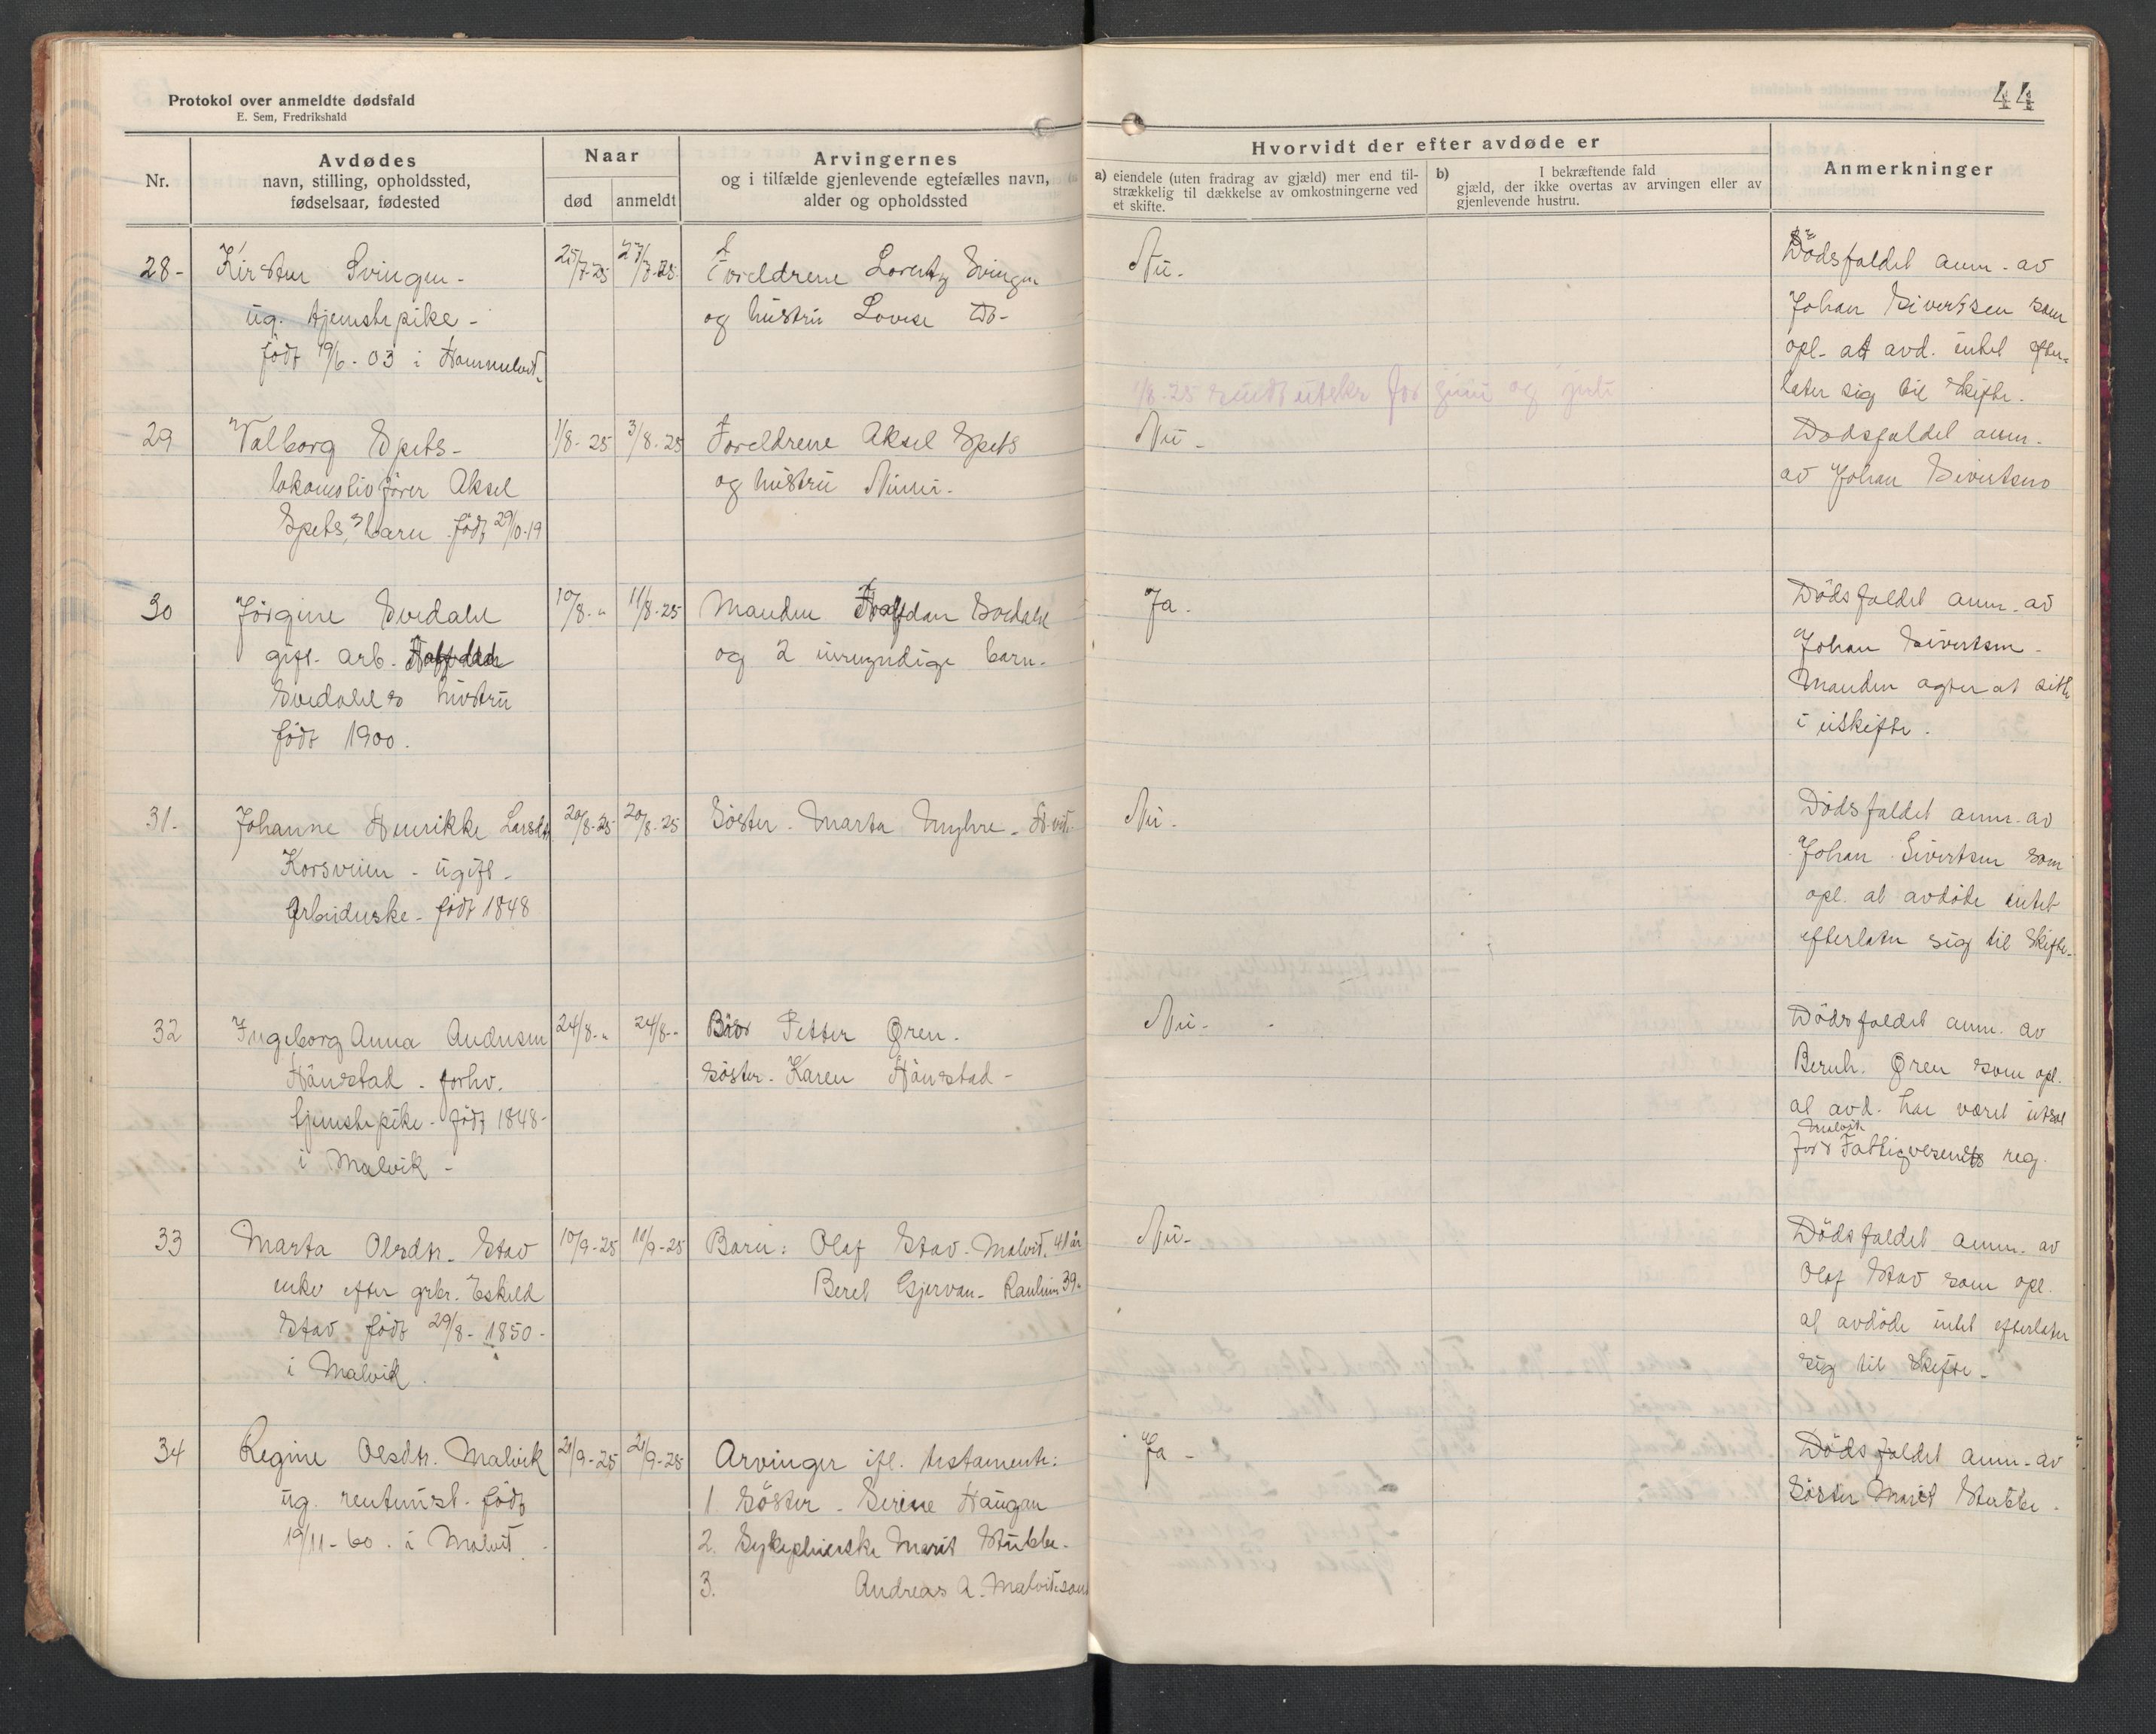 Protokol over anmeldte dødsfald
E. Sem, Fredrikshald
44
Nr.
Avdødes
navn, stilling, opholdssted,
fødselsaar, fødested
Naar
død
anmeldt
Arvingernes
og i tilfælde gjenlevende egtefælles navn,
alder og opholdssted
Hvorvidt der efter avdøde er
a) eiendele (uten fradrag av gjæld) mer end til-
strækkelig til dækkelse av omkostningerne ved
et skifte.
b) I bekræftende fald
gjæld, der ikke overtas av arvingen eller av
gjenlevende hustru.
Anmerkninger
28- Kirsten Svingen - 25/7-25 27/7-25 Foreldrene Lorentz Svingen Nei.
ug. tjenestepike -
og hustru Lovise Do-
født 19/6-03 i Hommelvik
Dödsfaldet anm. av
Johan Sivertsen som
opl. at avd. intet efter-
later sig til skifte.
1/8-25 sendt utskr for juni og juli
29 Valborg Spets - 1/8-25 3/8-25 Foreldrene Aksel Spets Nei -
lokomotivfører Aksel
og hustru
Spets, barn født 29/10-19
Dödsfaldet anm.
av Johan Sivertsen
30 Jörgine Svedahl 10/8-" 11/8-25 Manden Halfdan Svedahl Ja.
gift. arb. Halfdan
og 2 umyndige barn.
Svedahls hustru
født 1900.
Dödsfaldet anm. av
Johan Sivertsen -
Manden agter at sitte
i uskifte.
31- Johanne Henrikke Larsdtr 20/8-25 20/8-25 Söster - Marta Myhre - H.vik. Nei.
Korsveien - ugift -
Arbeiderske - født 1848
Dödsfaldet anm. av
Johan Sivertsen som
opl. at avdöde intet
efterlater sig til skifte.
32 Ingeborg Anna Andersen 24/8-" 24/8-" Bror Petter Øren. Nei -
Hönstad - forhv.
söster - Karen Hönstad -
tjenestepike - født 1848-
i Malvik -
Dödsfaldet anm. av
Bernh. Øren som opl.
at avd. har været
Malvik
for Fattigvesenets reg.
33 Marta Olsdtr. Stav 10/9-25 11/9-25 Barn: Olaf Stav - Malvik. 41 år Nei-
enke efter grbr. Eskild
Beret Gjervan - Ranheim 39"
Stav født 29/8-1850-
i Malvik.
Dödsfaldet anm. av
Olaf Stav som opl.
at avdöde intet efterlater
sig til skifte -
34 Regine Olsdtr. Malvik 21/9-25 21/9-25 Arvinger ifl. testamente: Ja -
ug. rentenist - født
1. Söster - Serine Haugan
19/11-60. i Malvik
2. Sykepleierske Marit Stubbe.
3. Andreas A. Malvik
Dödsfaldet anm. av
Söster Marit Stubbe.